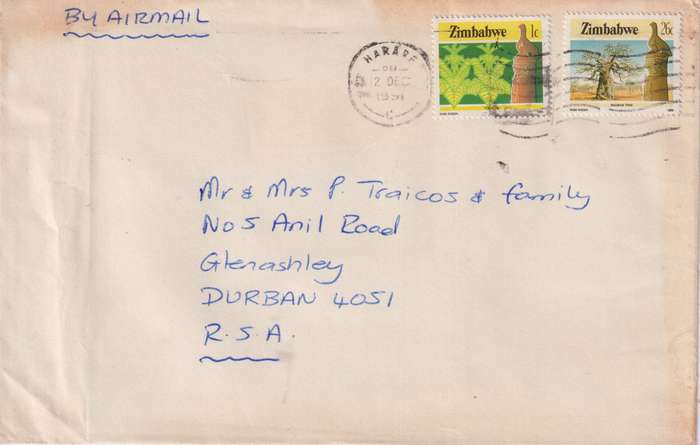 BY AIRMAIL
Zimbabwe 1c
Zimbabwe 26c
HARARE
2 DEC
Mr & Mrs P. Traicos & family
No 5 Anil Road
Glenashley
DURBAN 4051
R.S.A.